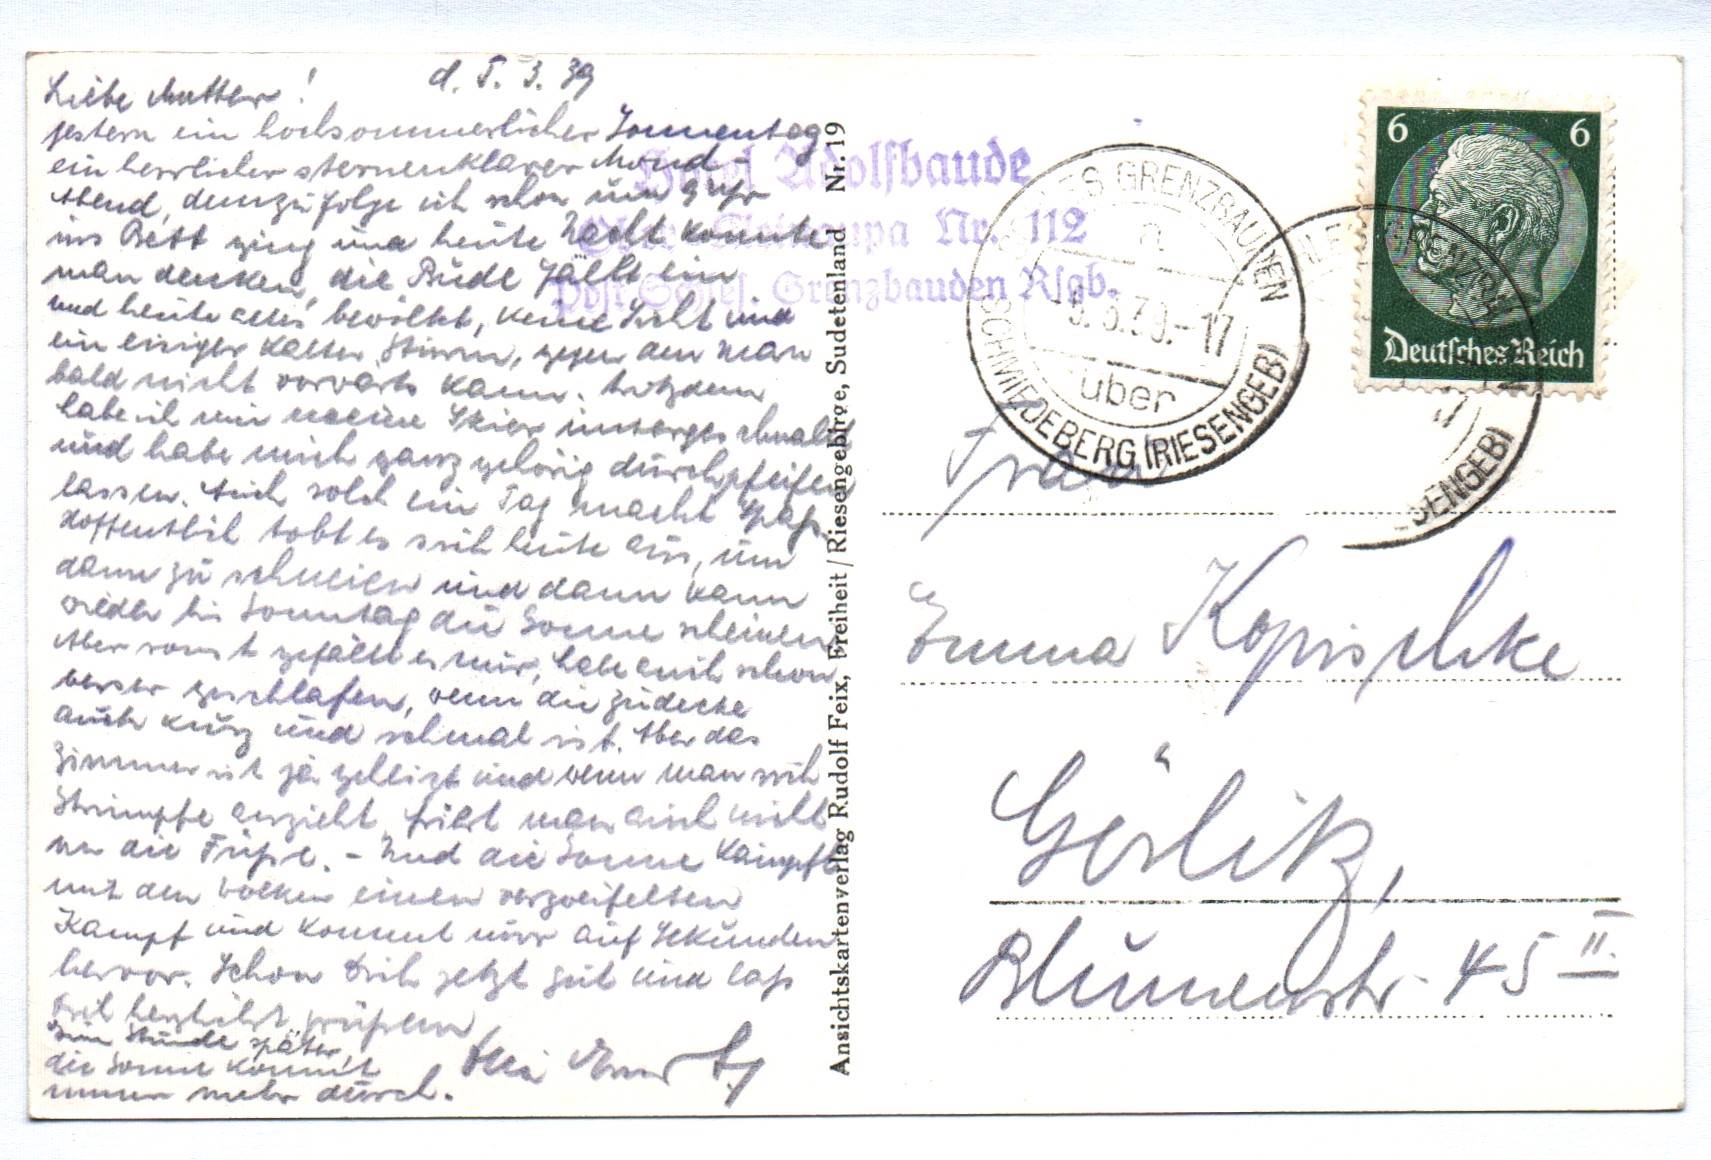 d. 5. 3. 39
Liebe Mutter!
gestern ein hochsommerlicher Sonnentag
ein herrlicher sternenklarer Mond-
Abend, demzufolge ich schon um 9 Uhr
ins Bett ging und heute Nacht konnte
man denken, die Bude fällt ein
und heute alles bewölkt, keine Sicht und
ein eisiger kalter Sturm, gegen den man
bald nicht vorwärts kann. trotzdem
habe ich mir meine Skier untergeschnallt
und habe mich ganz gehörig durchpfeifen
lassen. Auch solch ein Tag macht Spaß.
Hoffentlich tobt es sich heute aus, um
dann zu schneien und dann kann
wieder bis Sonntag die Sonne scheinen
Aber sonst gefällt es mir, habe auch schon
besser geschlafen, wenn die Zudecke
auch kurz und schmal ist. Aber das
Zimmer ist ja geheizt und wenn man sich
Strümpfe anzieht, friert man auch nicht
an die Füße. - Und die Sonne kämpft
mit den Wolken einen verzweifelten
Kampf und kommt nur auf Sekunden
hervor. Schon Dich jetzt gut und laß
Dich herzlichst grüßen
Eine Stunde später,
die Sonne kommt
immer mehr durch.
Ansichtskartenverlag Rudolf Feix, Freiheit / Riesengebirge, Sudetenland Nr. 19
Hotel Adolfbaude
Ober Kleinaupa Nr. 112
Post Schles. Grenzbauden Rsgb.
SCHLES GRENZBAUDEN
a
39.-17
über
SCHMIEDEBERG (RIESENGEB)
6 6
Deutsches Reich
SENGEB)
Frau
Emma Kopischke
Görlitz,
Blumenstr. 45 II.